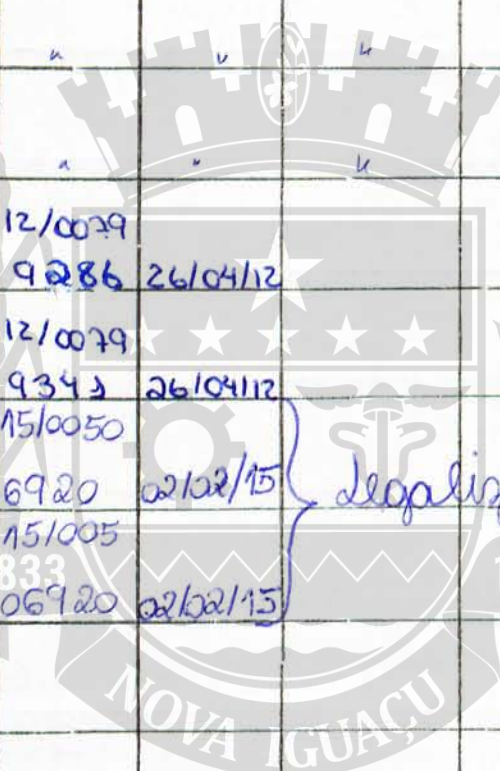 " " "
" " "
12/0079
9286 26/04/12
12/0079
9341 26/04/12
15/0050
6920 02/02/15
15/005
06920 02/02/15
833
NOVA IGUAÇU